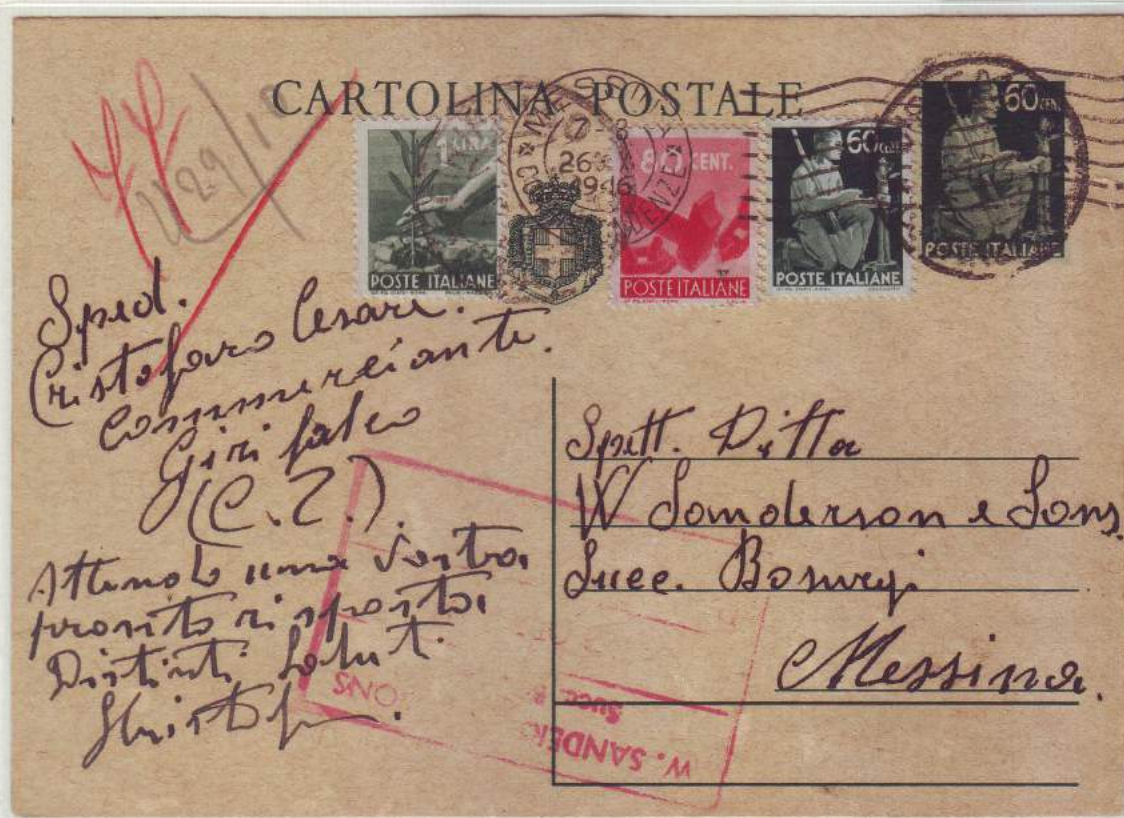 CARTOLINA POSTALE
1 LIRA
POSTE ITALIANE
7-8
26
1946
80 CENT.
POSTE ITALIANE
60 CENT.
POSTE ITALIANE
60 CEN.
POSTE ITALIANE
Sped.
Cristofaro Cesare.
Commerciante.
Girifalco
(C.Z.).
Attendo una Vostra
pronta risposta
Distinti Saluti.
Spett. Ditta
W Sanderson e Sons
Succ. Bosurgi
Messina.
W. SANDER
ONS
Succ.